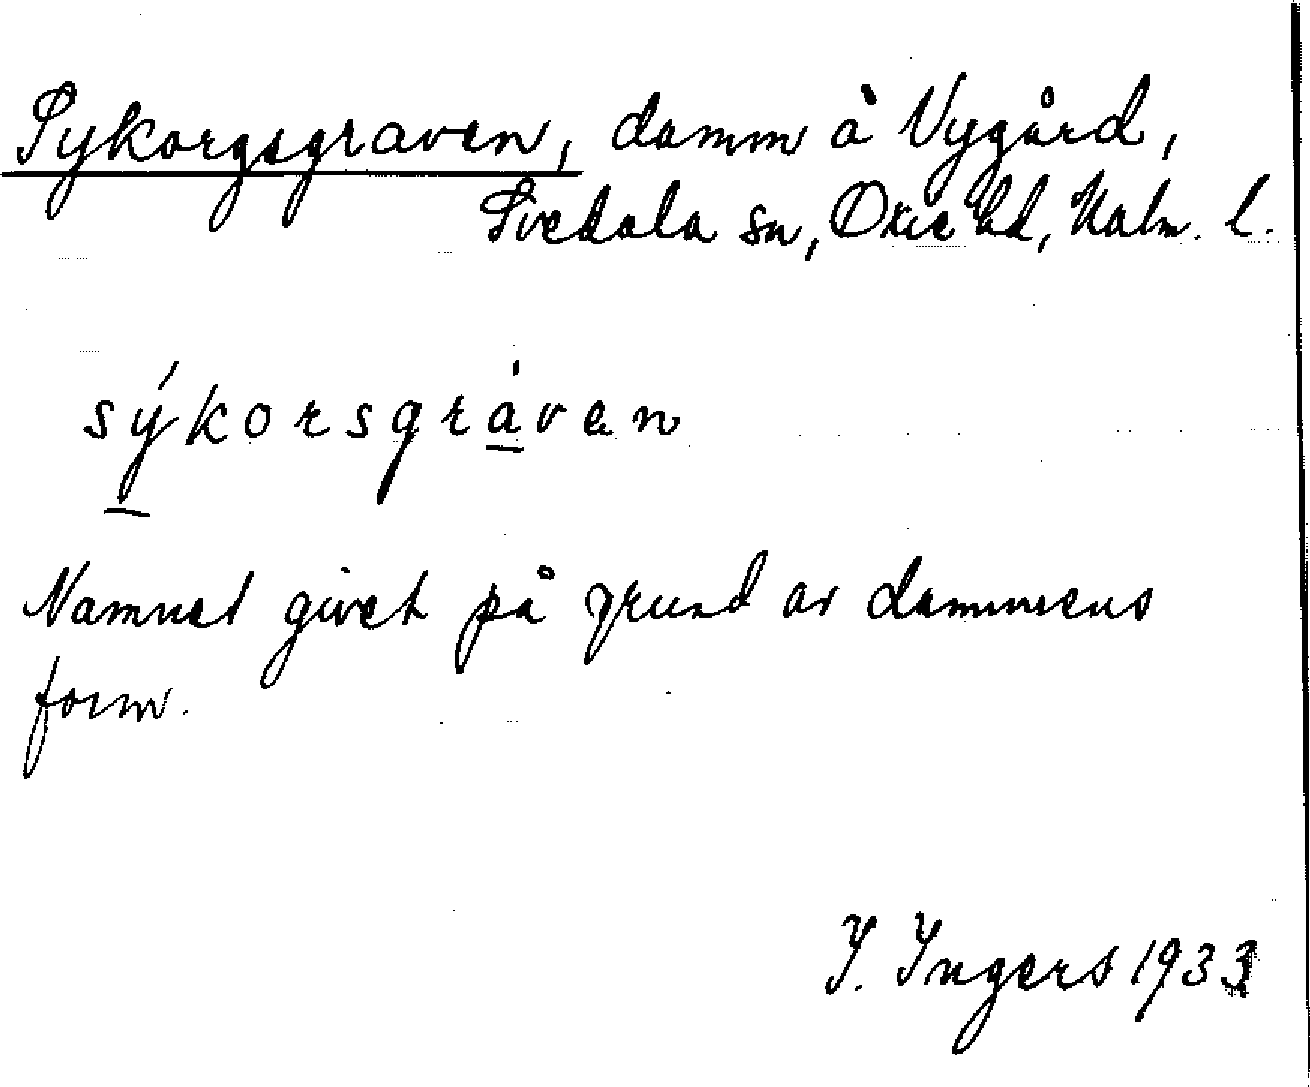 Sykorgsgraven, damm à Nygård,
Svedala sn, Oxie hd, Malm. l.
sýkorsgràven
Namnet givet på grund av dammens
form.
I. Ingers 1933